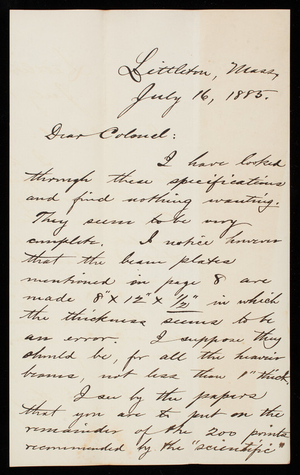 Littleton, Mass,
July 16, 1885.
Dear Colonel:
I have looked
through these specifications
and find nothing wanting.
They seem to be very
complete. I notice however
that the beam plates
mentioned in page 8 are
made 8" x 12" x 1/2" in which
the thickness seems to be
an error. I suppose they
should be, for all the heavier
beams, not less than 1" thick.
I see by the papers
that you are to put on the
remainder of the 200 points
recommended by the "scientific"